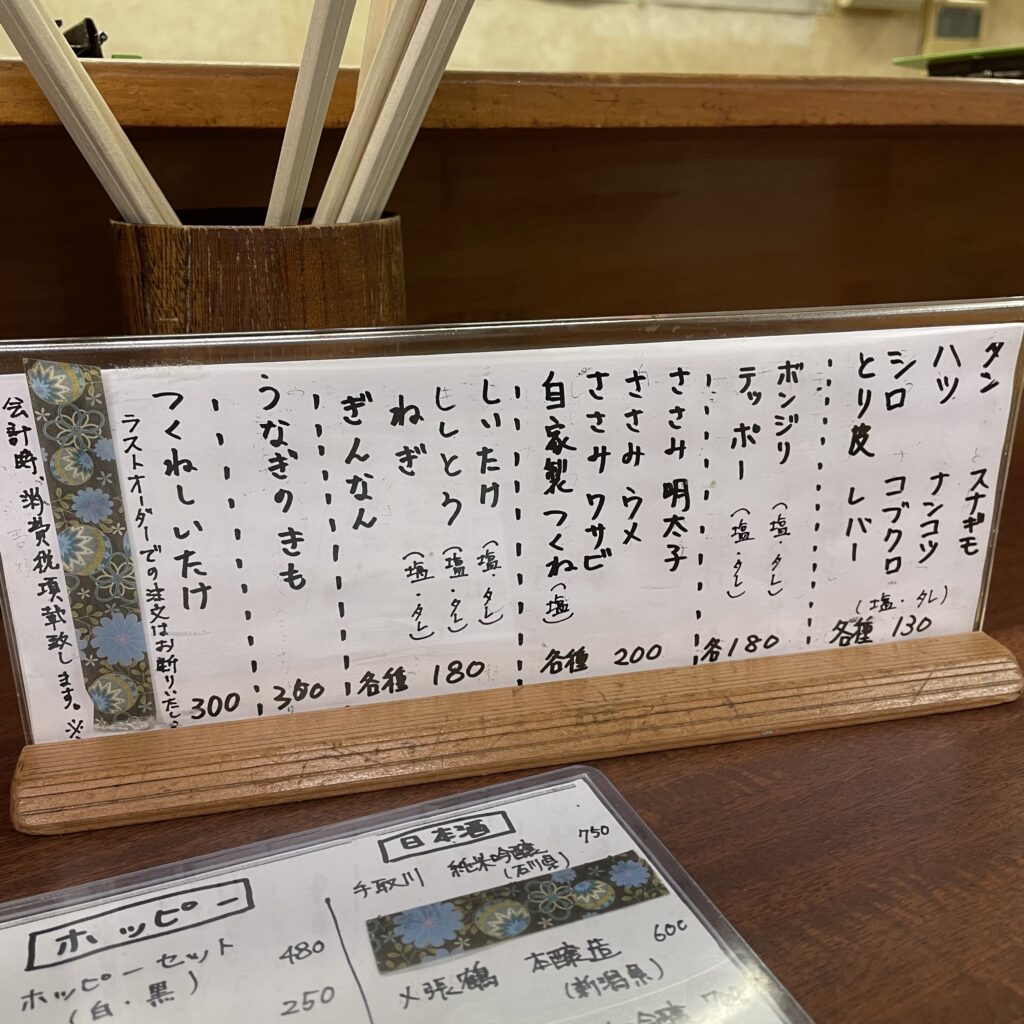 タン スナギモ
ハツ ナンコツ
シロ コブクロ
とり皮 レバー
(塩・タレ)
各種 130
ボンジリ (塩・タレ)
テッポー (塩・タレ)
各180
ささみ 明太子
ささみ ウメ
ささみ ワサビ
自家製つくね(塩)
各種 200
しいたけ (塩・タレ)
ししとう (塩・タレ)
ねぎ (塩・タレ)
ぎんなん
各種 180
うなぎのきも
300
つくねしいたけ
300
ラストオーダーでの注文はお断りいたし
会計時、消費税項戴致します。※
日本酒
手取川 純米吟醸 750
(石川県)
〆張鶴 本醸造 600
(新潟県)
ホッピー
ホッピーセット 480
(白・黒)
250